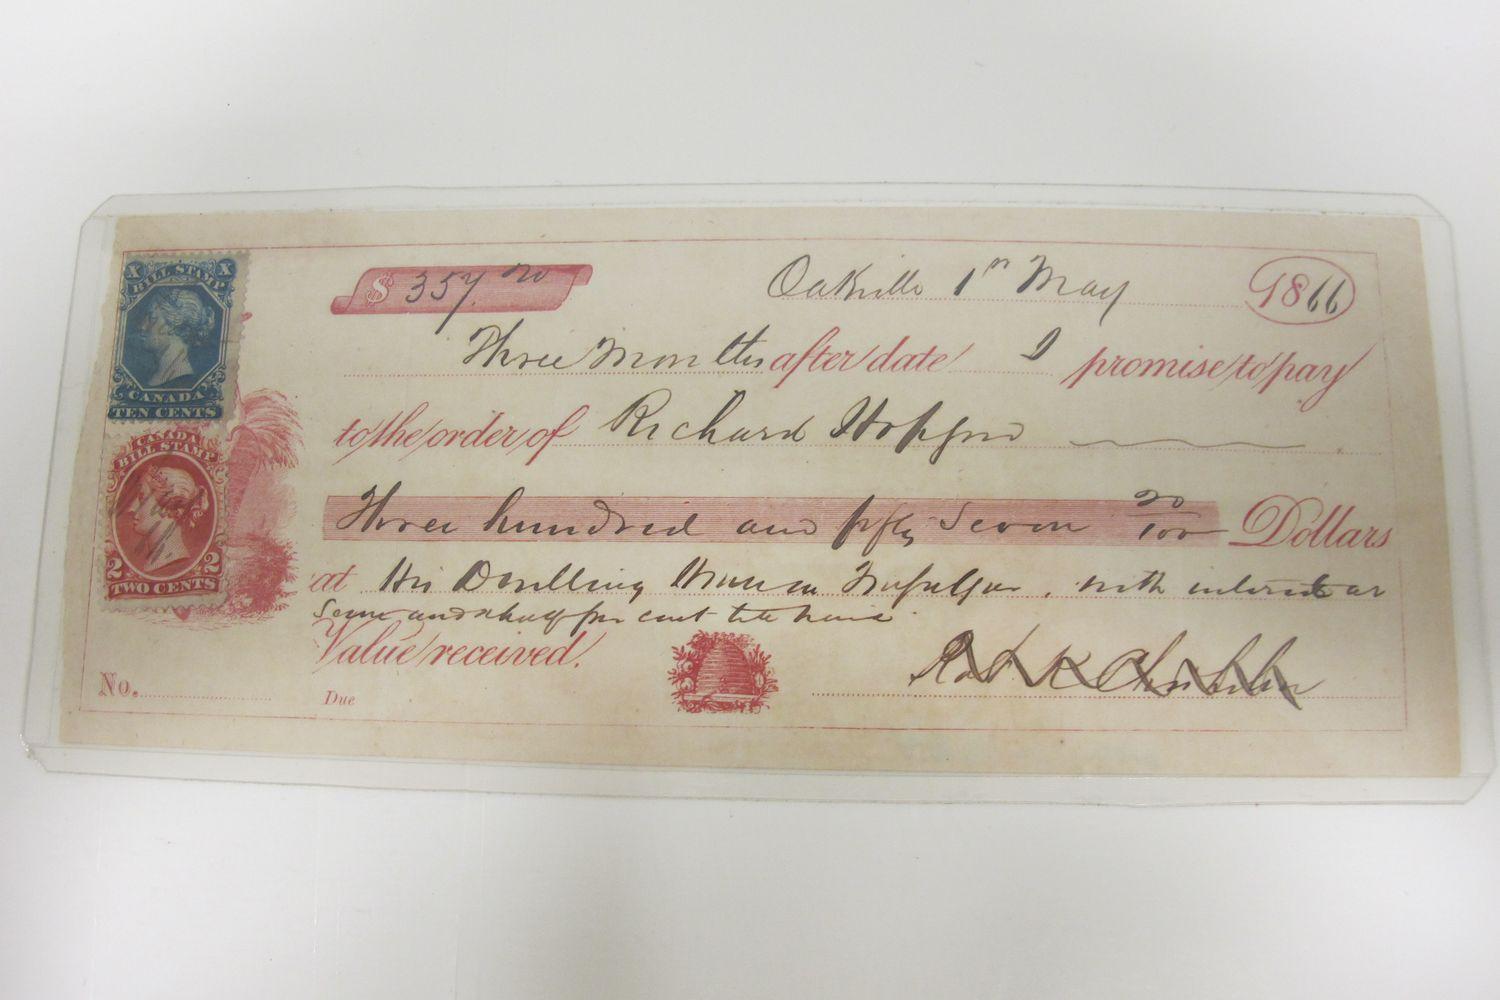 X BILL STAMP X
CANADA
TEN CENTS
CANADA
BILL STAMP
2 2
TWO CENTS
$ 357.20
Oakville 1st May 1866
Three Months after date I promise to pay
to the order of Richard
Three hundred and fifty Seven 20/100 Dollars
at His Dwelling House in Trafalgar, with interest at
Seven and a half per cent till
Value received.
No.
Due